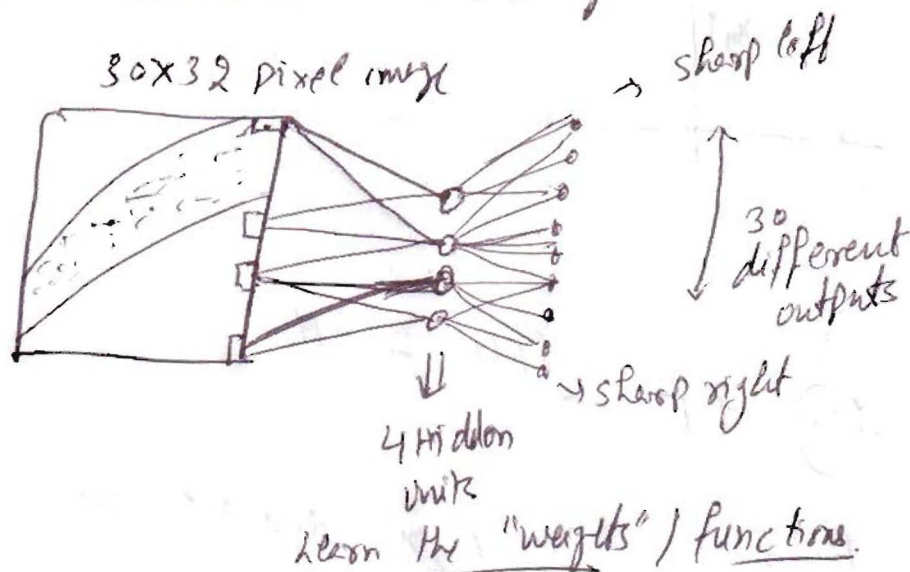 30x32 pixel image
sharp left
30
different
outputs
sharp right
4 Hidden
units
Learn the "weights" / functions.